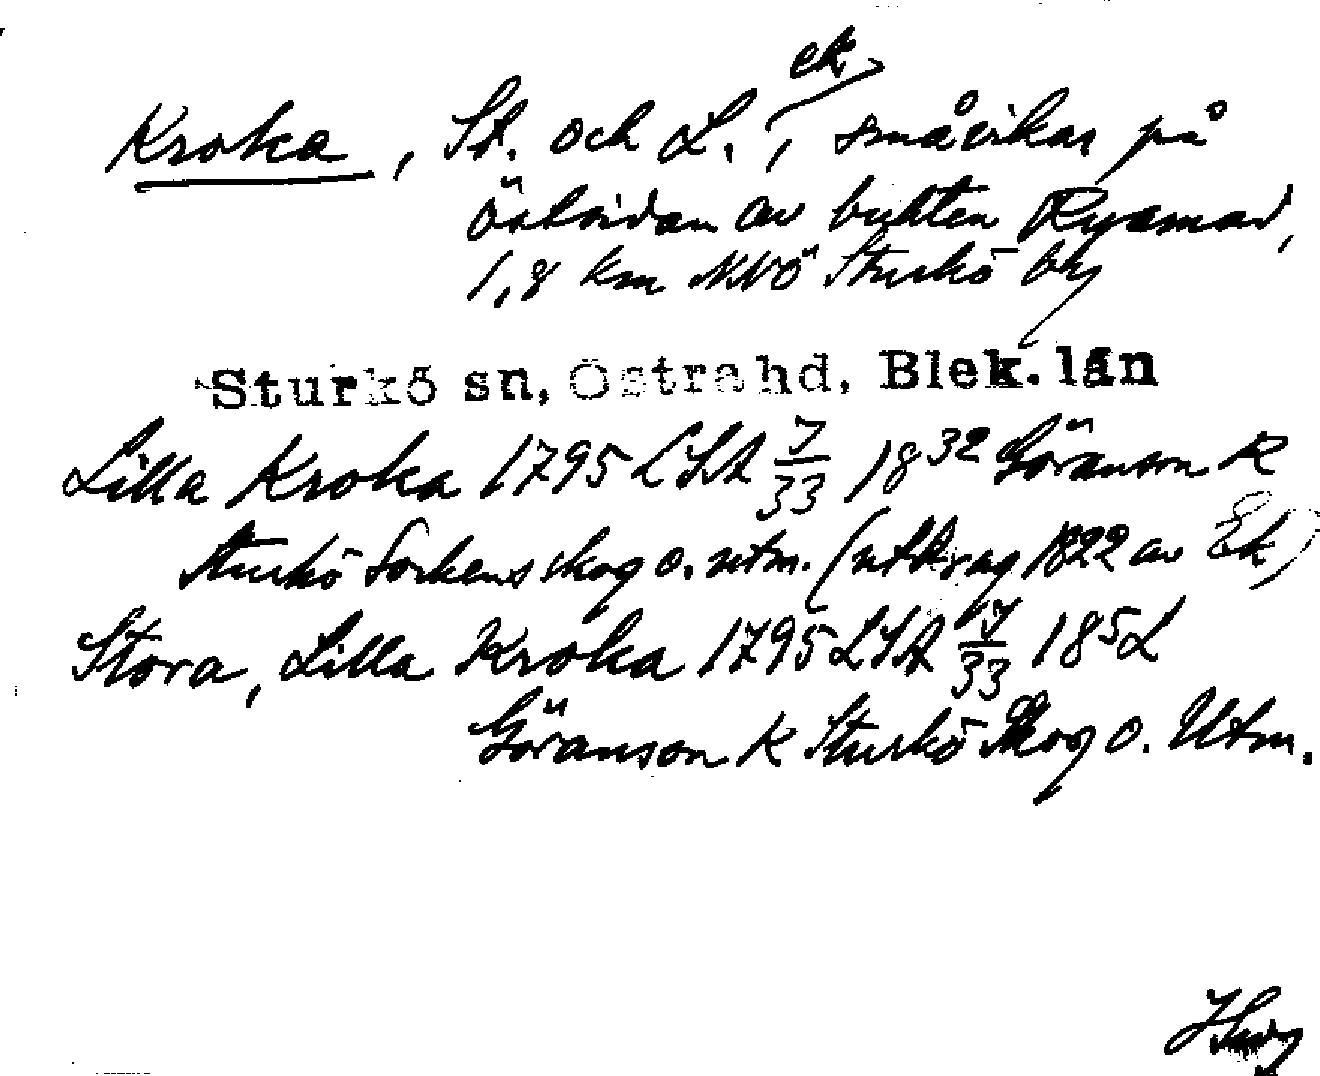 ek.
Kroka, St. och L., småvikar på
östsidan av bukten Ryamad,
1,8 km NNÖ Sturkö by
Sturkö sn, Östra hd, Blek. län
Lilla Kroka 1795 LSA 7/33 18 32 Göranson K
Sturkö Sockens skog o. utm. (utdrag 1822 av Ek)
Stora, Lilla Kroka 1795 LSA 7/33 18 5 L
Göranson K Sturkö Skog o. Utm.